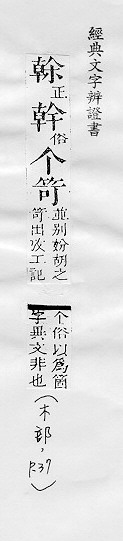 經典文字辨證書
榦正幹俗个笴並別妢胡之
笴出攷工記
个俗以為箇
字典文非也
(木部,
P.37)